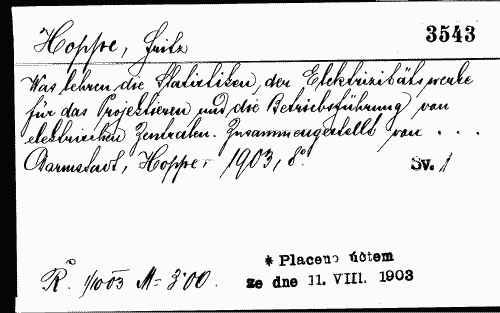 Hoppe, Fritz 3543
Was lehren die Statistiken der Elektrizitätswerke
für das Projektieren und die Betriebsführung von
elektrischen Zentralen. Zusammengestellt von . . .
Darmstadt, Hoppe, 1903, 8°. Sv. 1
* Placeno účtem
R° 1/10 03 M= 3·00. ze dne 11. VIII. 1903